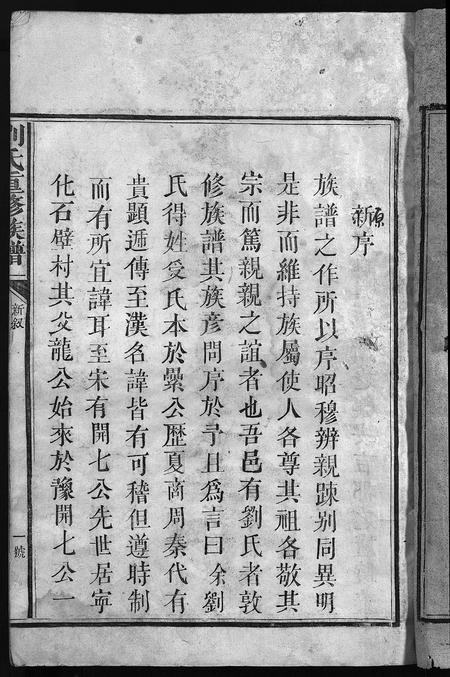 原
新序
族譜之作所以序昭穆辨親踈别同異明
是非而維持族屬使人各尊其祖各敬其
宗而篤親親之誼者也吾邑有劉氏者敦
修族譜其族彦問序於予且爲言曰余劉
氏得姓受氏本於纍公歷夏商周秦代有
貴顯遞傳至漢名諱皆有可稽但遵時制
而有所宜諱耳至宋有開七公先世居寧
化石壁村其父龍公始來於豫開七公一
劉氏重修族譜
新叙
一號